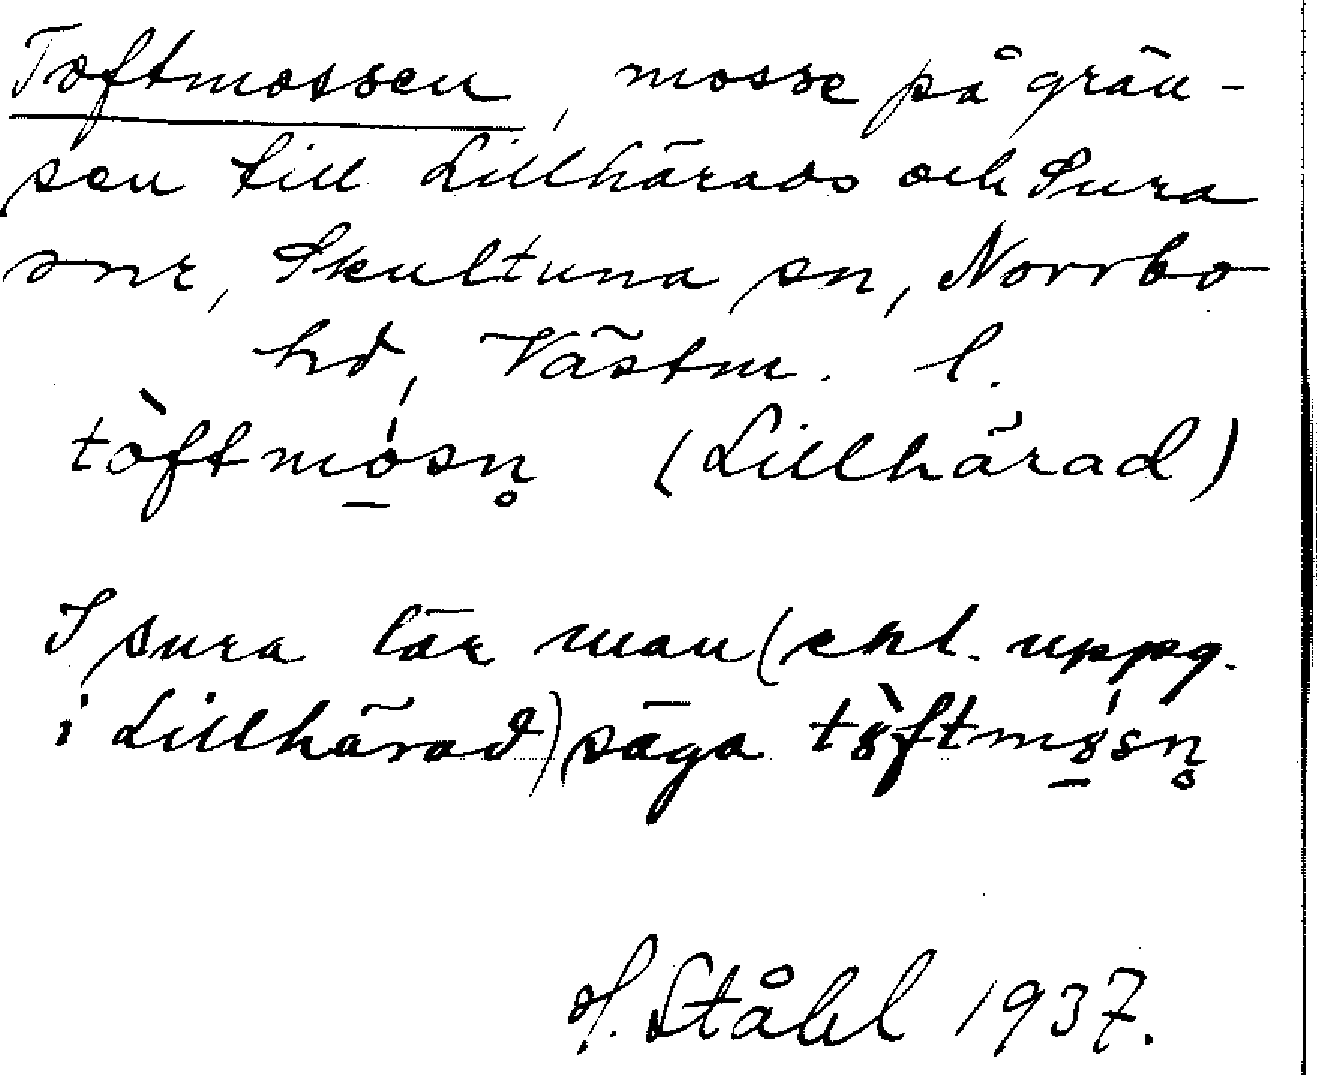 Toftmossen, mosse på grän-
sen till Lillhärads och Sura
snr, Skultuna sn, Norrbo
hd, Västm. l.
tòftmó̱sn̥ (Lillhärad)
I Sura lär man (enl. uppg.
i Lillhärad) säga tɤ̀ftmɤ̱́sn̥
H. Ståhl 1937.